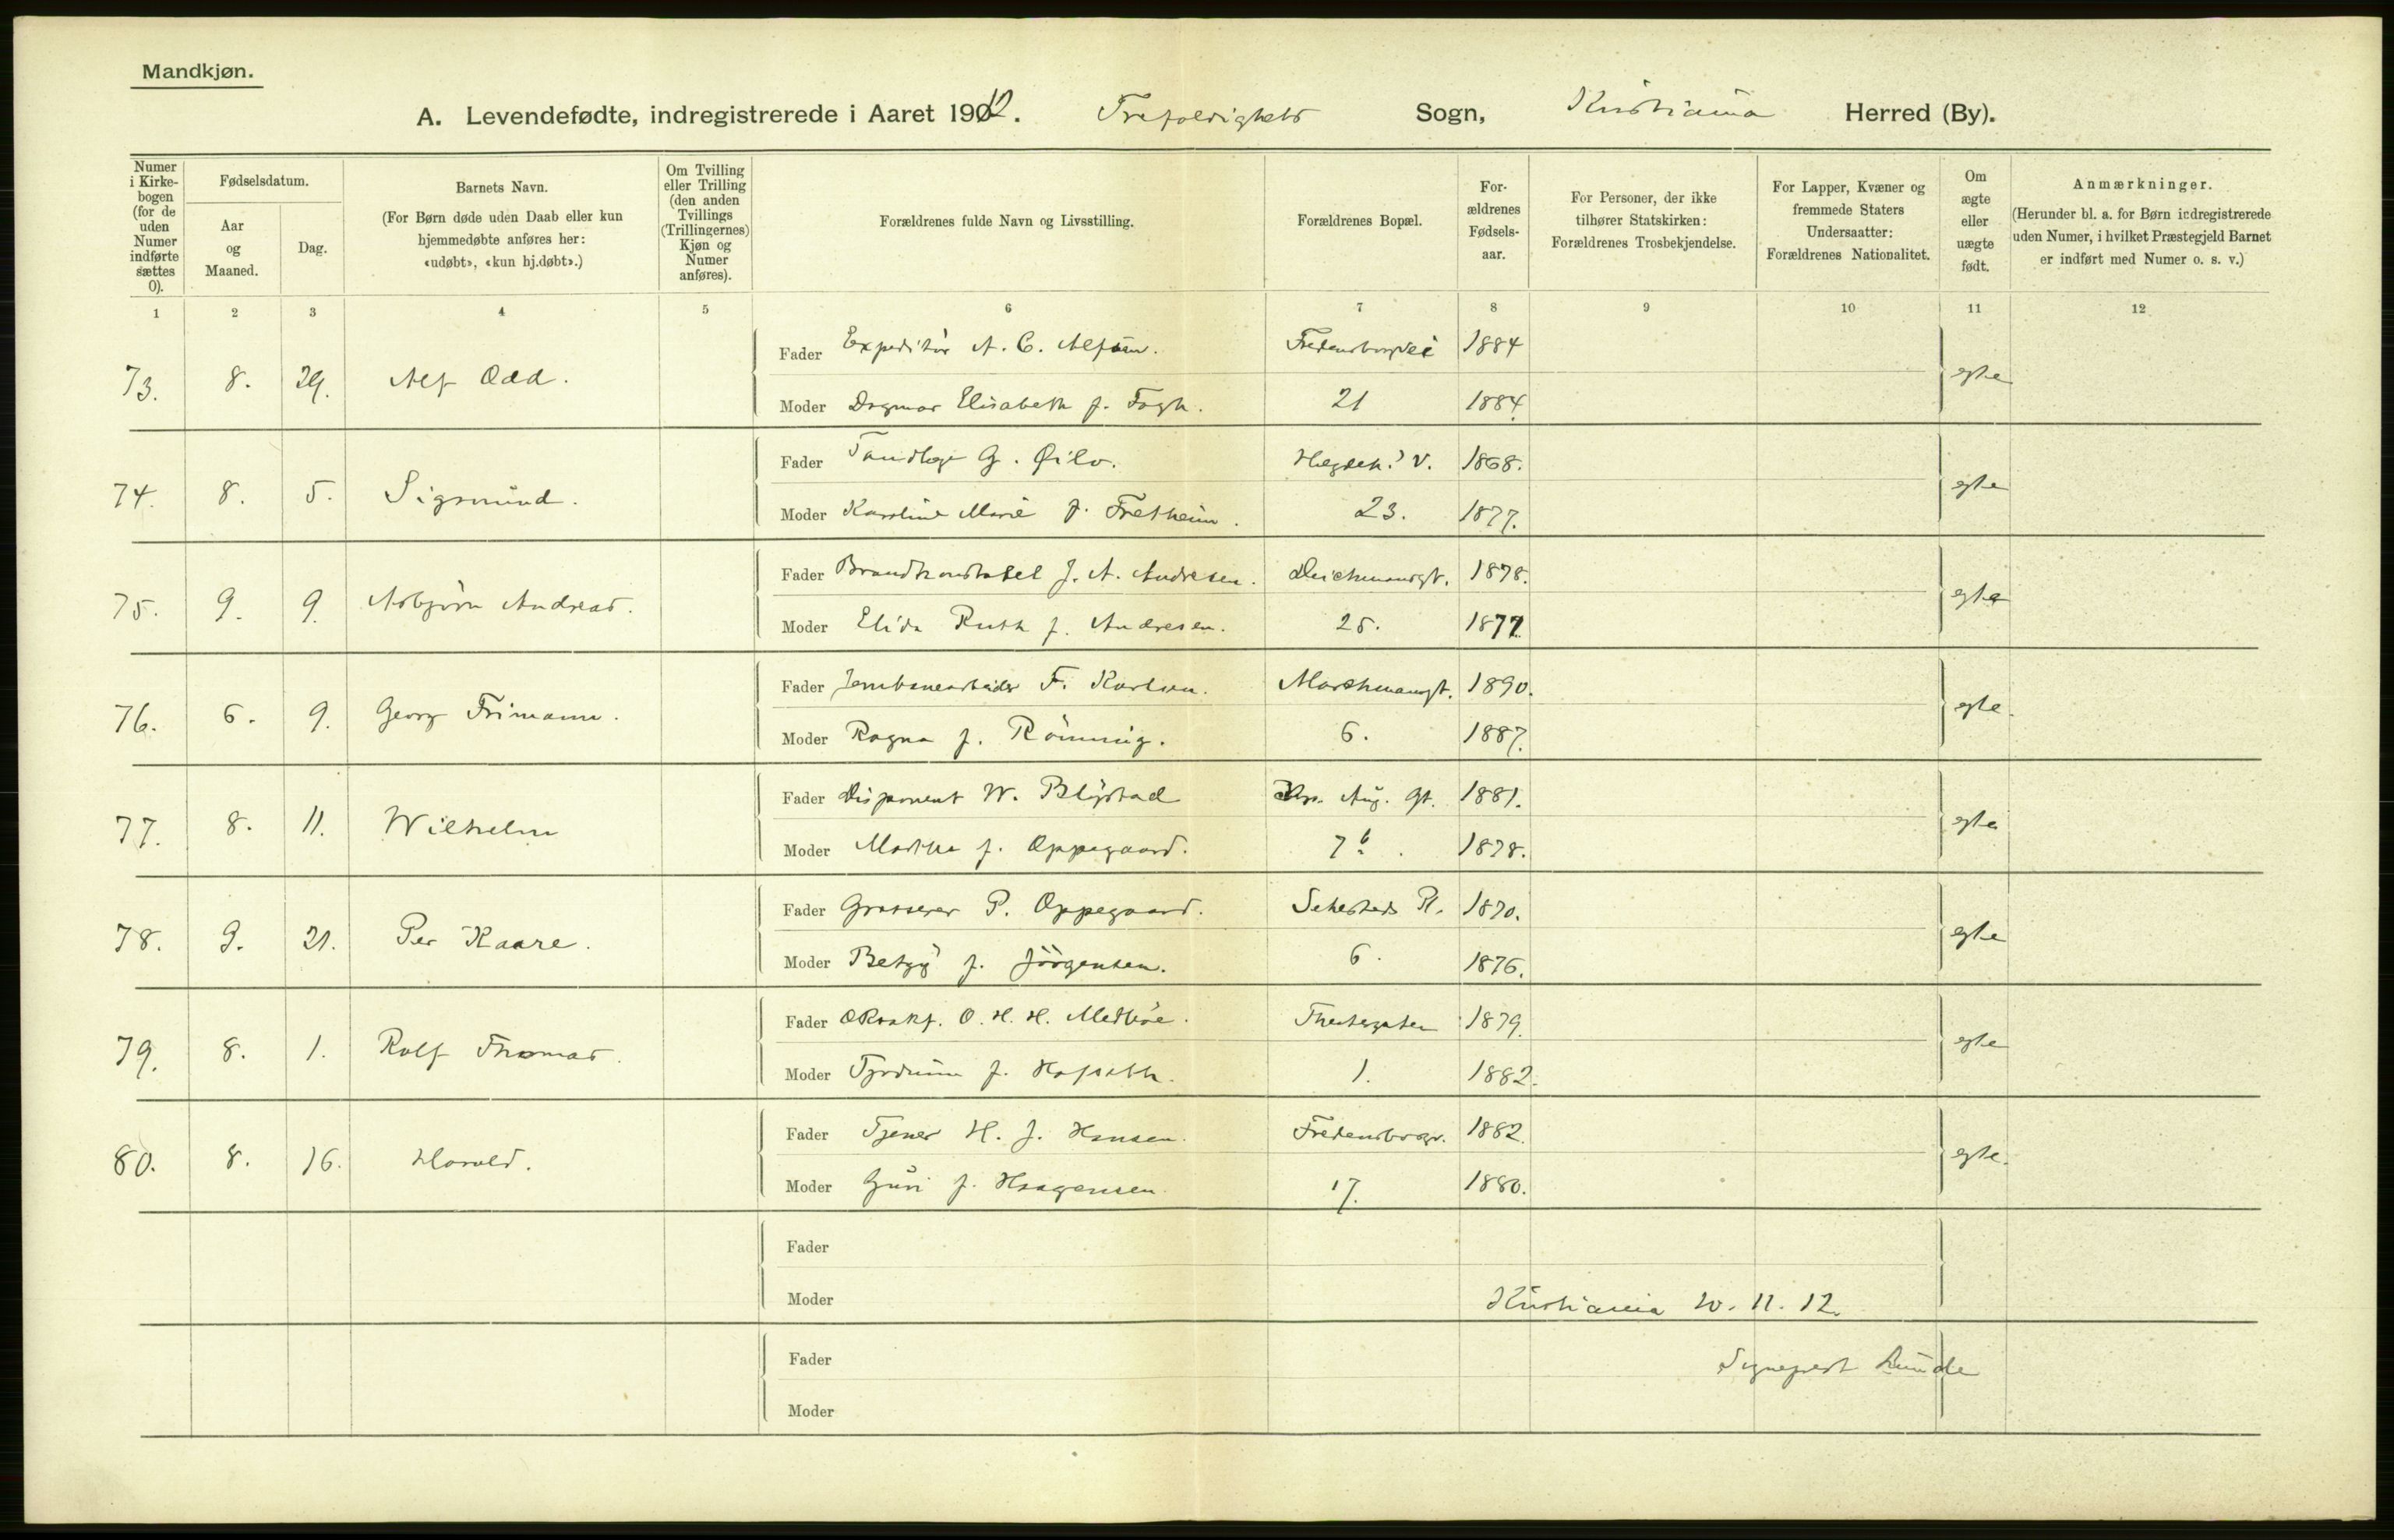 Mandkjøn.
A. Levendefødte, indregistrerede i Aaret 1912. Trefoldigheds Sogn, Kristiania Herred (By).
Numer i Kirkebogen (for de uden Numer indførte sættes 0).
Fødselsdatum.
Aar og Maaned.
Dag.
Barnets Navn.
(For Børn døde uden Daab eller kun hjemmedøbte anføres her: «udøbt», «kun hj.døbt».)
Om Tvilling eller Trilling (den anden Tvillings (Trillingernes) Kjøn og Numer anføres).
Forældrenes fulde Navn og Livsstilling.
Forældrenes Bopæl.
Forældrenes Fødselsaar.
For Personer, der ikke tilhører Statskirken: Forældrenes Trosbekjendelse.
For Lapper, Kvæner og fremmede Staters Undersaatter: Forældrenes Nationalitet.
Om ægte eller uægte født.
Anmærkninger.
(Herunder bl. a. for Børn indregistrerede uden Numer, i hvilket Præstegjeld Barnet er indført med Numer o. s. v.)
1 2 3 4 5 6 7 8 9 10 11 12
Fader Expeditör A. C. Alfsen. Fredensborgvei 1884
73. 8. 29. Alf Odd. egte
Moder Dagmar Elisabeth f. Fogh. 21 1884
Fader Tandlæge G. Öilo. Hegdeh. V. 1868.
74. 8. 5. Sigmund. egte
Moder Karoline Marie f. Fretheim. 23. 1877.
Fader Brandkonstabel J. A. Andresen. Deichmansgt. 1878.
75. 9. 9. Asbjörn Andreas. egte
Moder Elida Ruth f. Andresen. 25. 1877
Fader Jernbanearbeider F. Karlsen. 1890.
76. 6. 9. Georg Frimann. egte.
Moder Ragna f. Rönning. 6. 1887.
Fader Disponent W. Blystad Kr. Aug. Gt. 1881.
77. 8. 11. Wilhelm egte
Moder Marthe f. Oppegaard. 7b. 1878.
Fader Grosserer P. Oppegaard. Sehesteds Pl. 1870.
78. 9. 21. Per Kaare. egte
Moder Betzy f. Jörgensen. 6. 1876.
Fader O.H.H. Medböe. Theatergaten 1879.
79. 8. 1. Rolf Thomas. egte
Moder f. 1. 1882.
Fader Tjener H. J. Hansen. Fredensborgv. 1882.
80. 8. 16. Harald. egte.
Moder Guri f. Haagensen. 17. 1880.
Fader
Moder Kristiania 20. 11. 12.
Fader Sognepræst
Moder